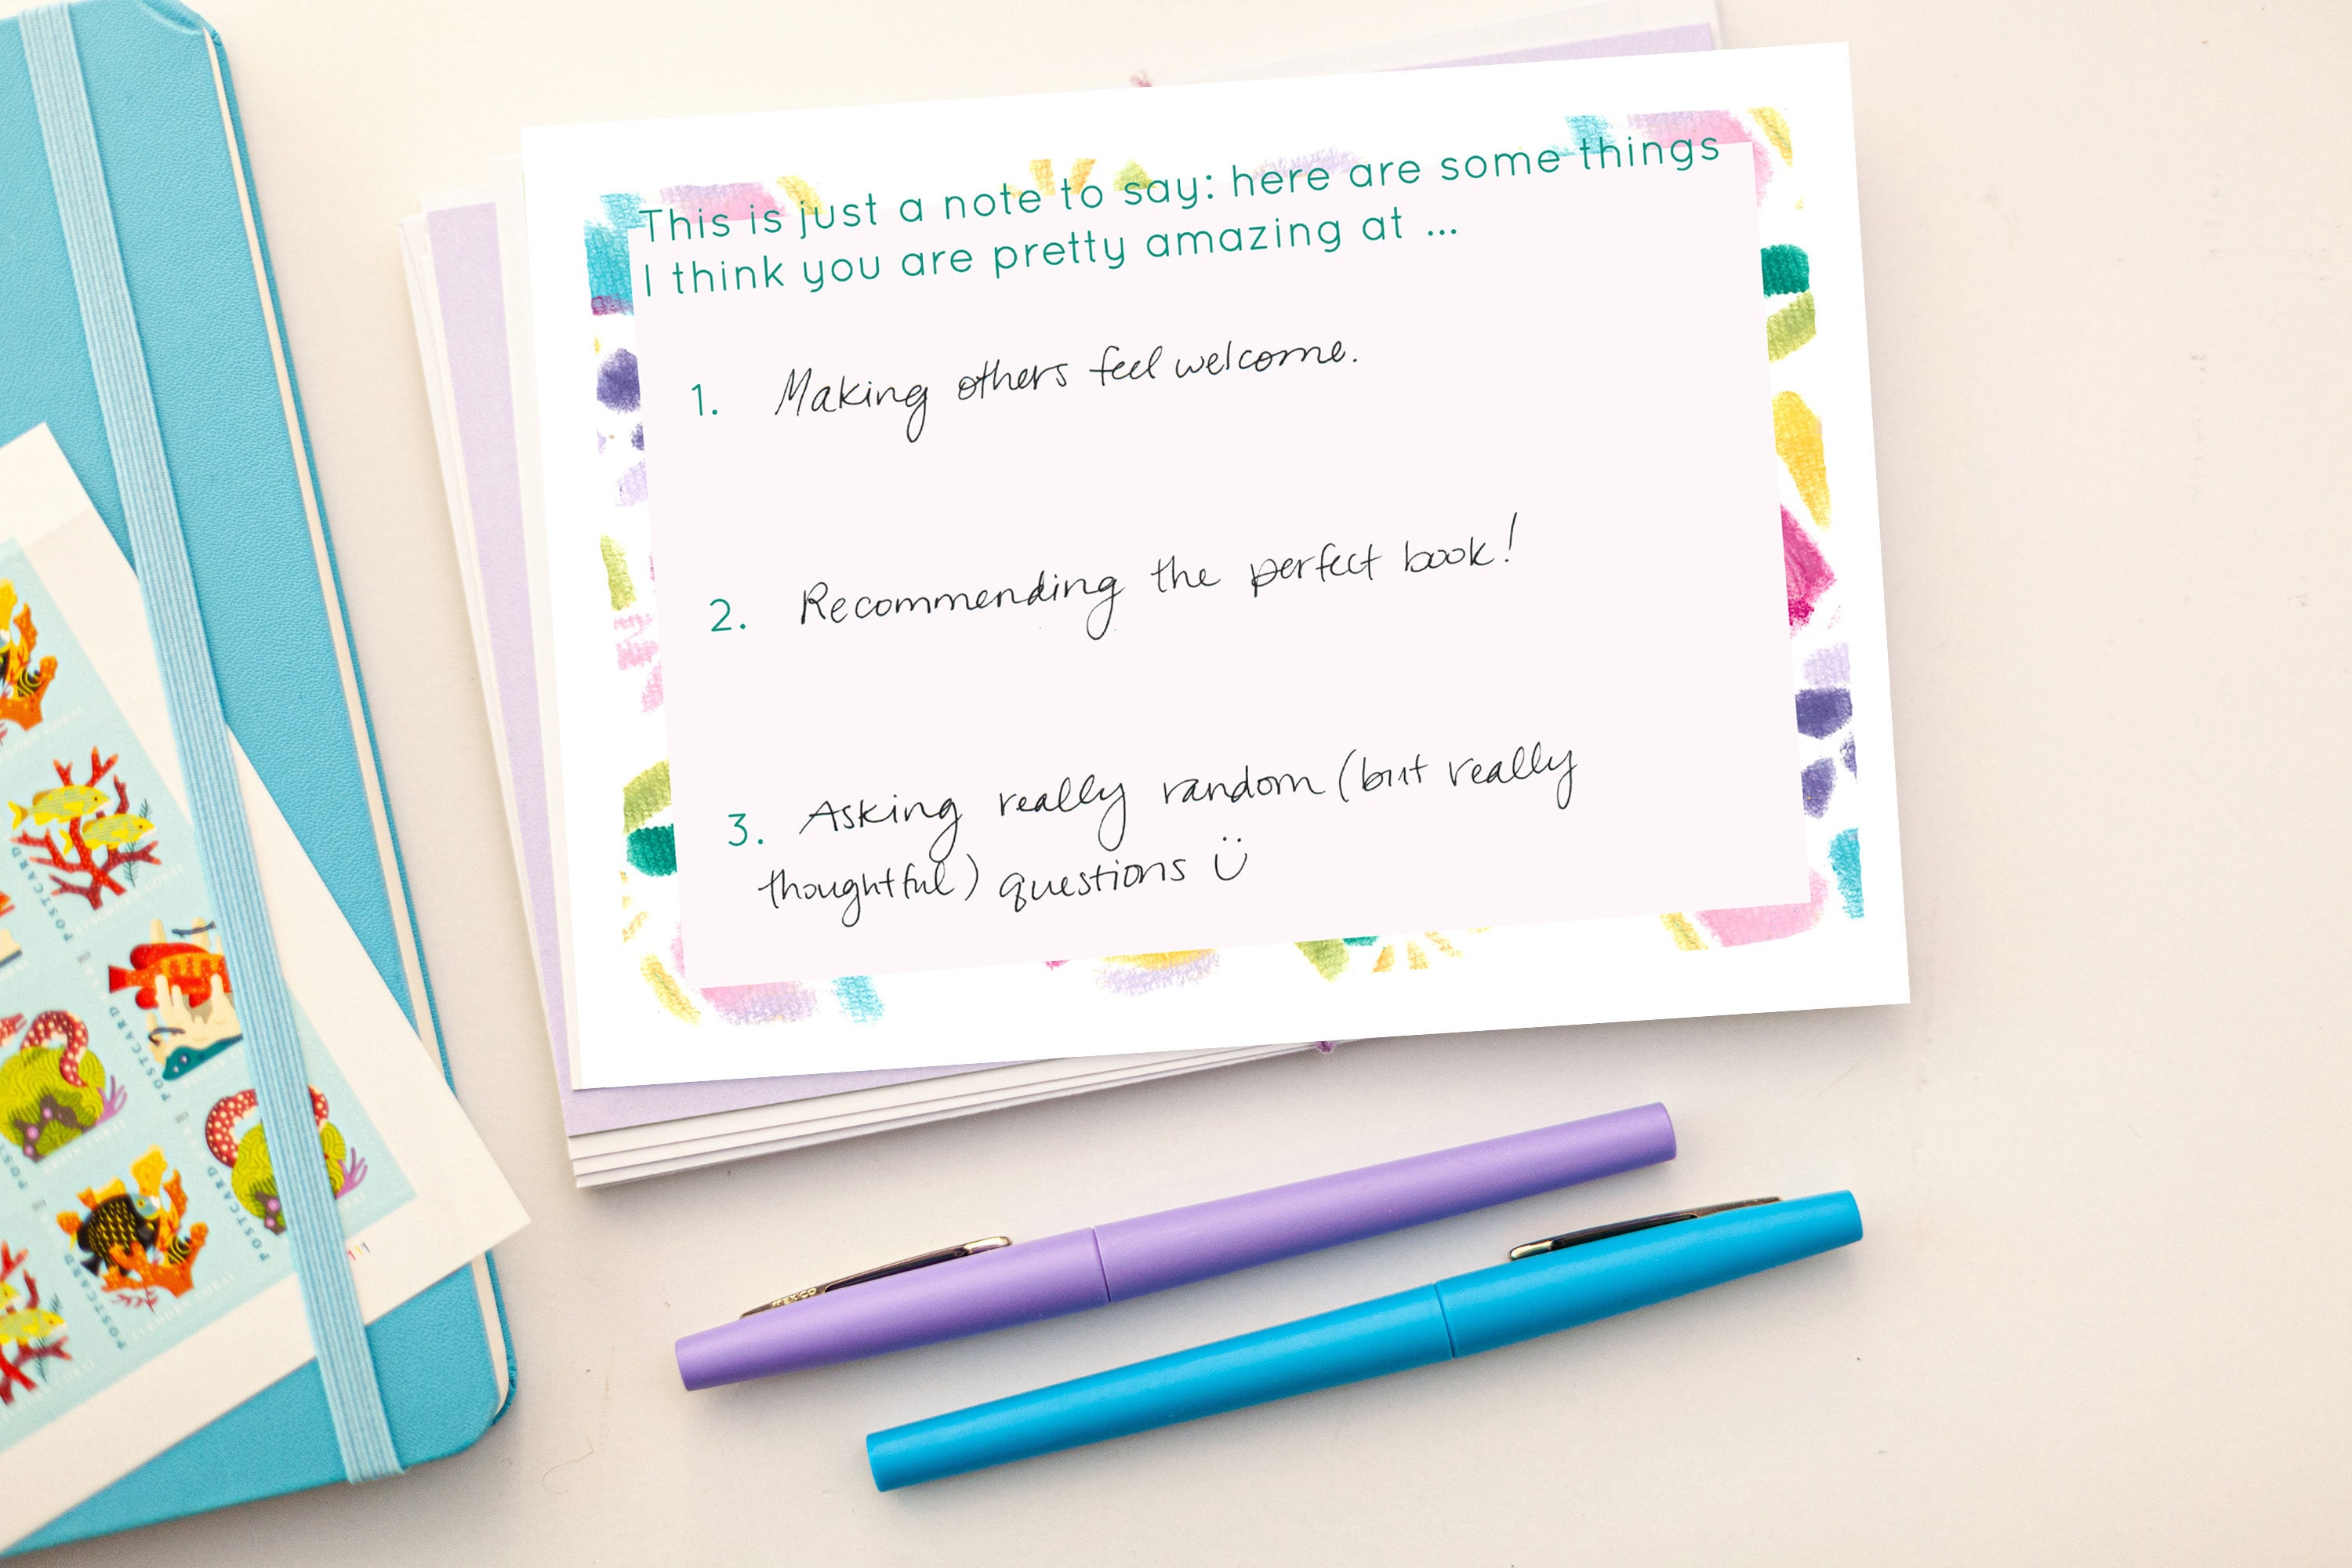 This is just a note to say: here are some things
I think you are pretty amazing at ...
1. Making others feel welcome.
2. Recommending the perfect book!
3. Asking really random (but really
thoughtful) questions ü
POSTCARD
POSTCARD
POSTCARD
POSTCARD
POSTCARD
MEXICO